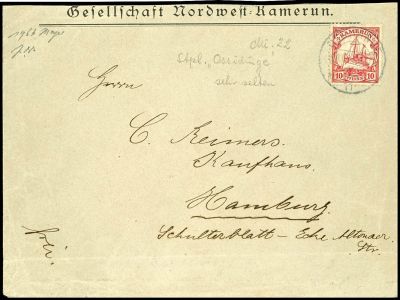 Gesellschaft Nordwest-Kamerun.
Mi. 22
Stpl. "Ossidinge"
sehr selten
KAMERUN
10 10
Herrn
C. Reimers.
Kaufhaus.
Hamburg.
Schulterblatt - Ecke Altonaer
Str.
frei.